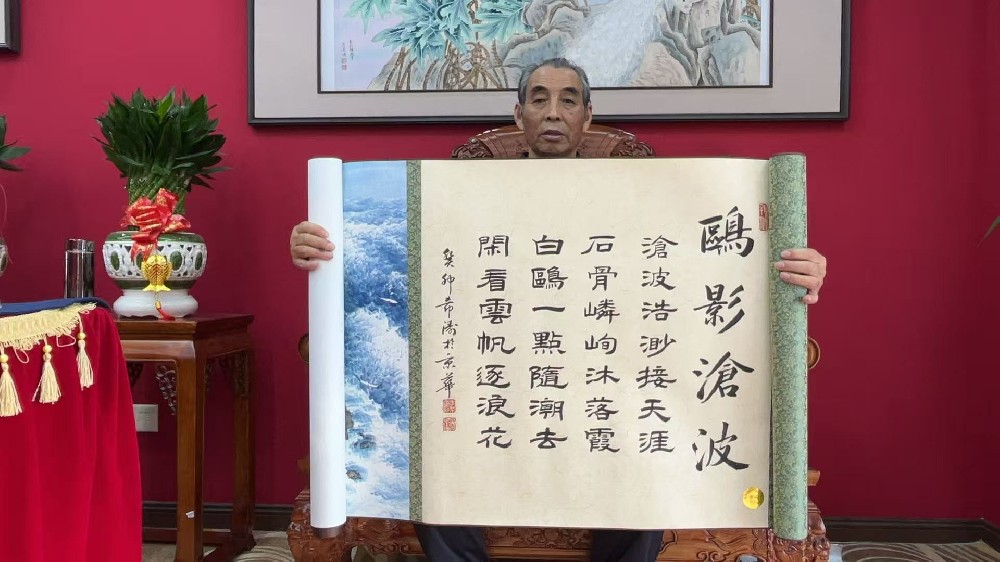 鷗影滄波
滄波浩渺接天涯
石骨嶙峋沐落霞
白鷗一點隨潮去
閑看雲帆逐浪花
癸卯希濤於京華